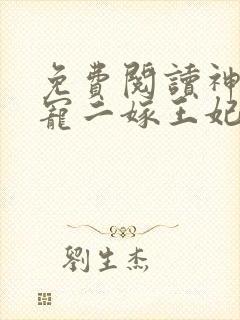 免費閱讀神
寵二嫁王妃
劉生杰